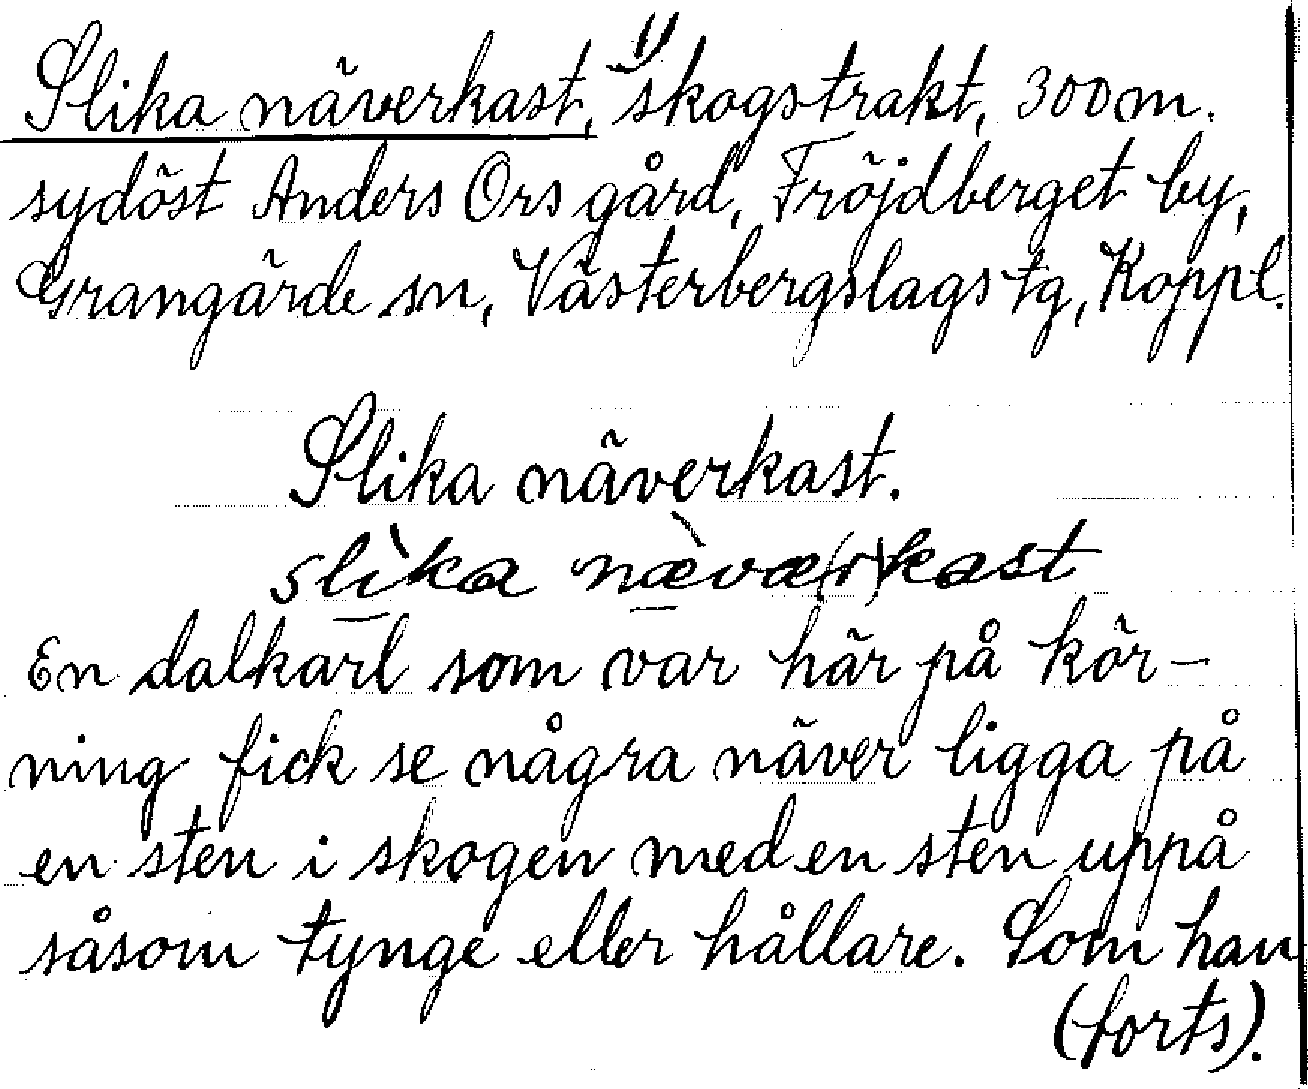 Slika näverkast, 1) skogstrakt, 300 m.
sydöst Anders Ors gård, Fröjdberget by,
Grangärde sn, Västerbergslags tg, Koppl.
Slika näverkast.
slìka næ̀væ(r)kast
En dalkarl som var här på kör-
ning fick se några näver ligga på
en sten i skogen med en sten uppå
såsom tynge eller hållare. Som han
(forts).